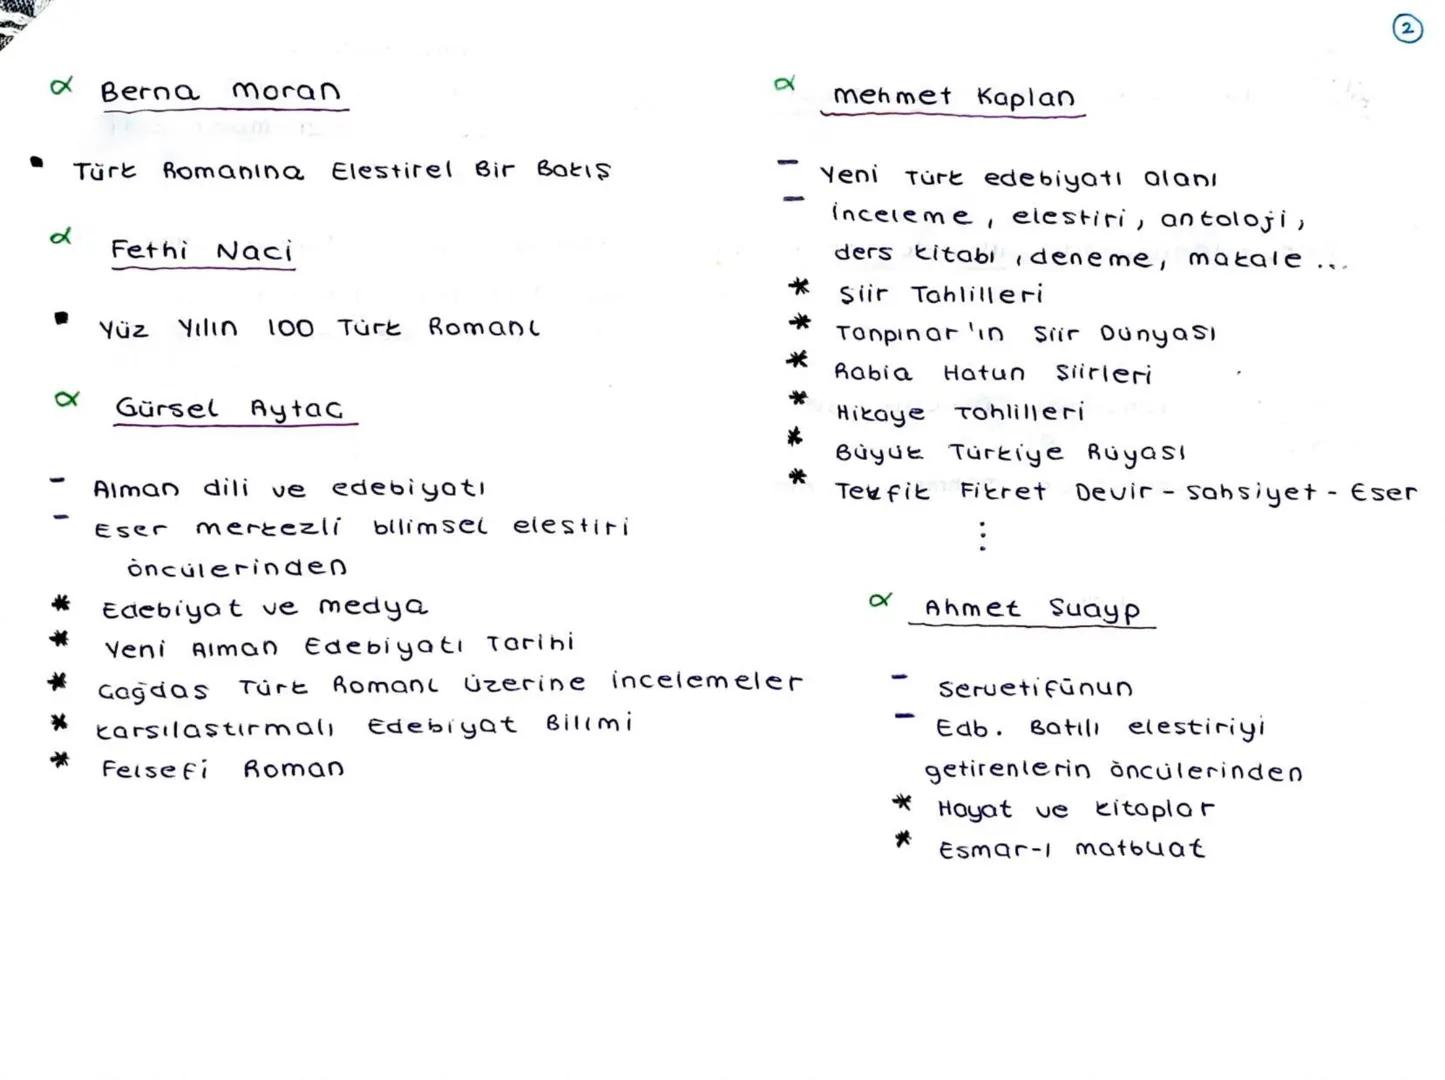 2
Berna moran
Türk Romanına Elestirel Bir Bakış
Fethi Naci
Yüz Yılın 100 Türk Romanı
Gürsel Aytac
- Alman dili ve edebiyatı
- Eser merkezli bilimsel elestiri
öncülerinden
* Edebiyat ve medya
* Yeni Alman Edebiyatı Tarihi
* Cağdas Türk Romanı üzerine incelemeler
* karsılaştırmalı Edebiyat Bilimi
* Felsefi Roman
mehmet Kaplan
- Yeni Türk edebiyatı alanı
- inceleme, elestiri, antoloji,
ders kitabı, deneme, makale ...
* Şiir Tahlilleri
* Tanpınar'ın Siir Dünyası
* Rabia Hatun Siirleri
* Hikaye Tahlilleri
* Büyük Türkiye Rüyası
* Tevfik Fikret Devir - sahsiyet - Eser
Ahmet Suayp
- servetifünun
- Edb. Batılı elestiriyi
getirenlerin öncülerinden
* Hayat ve kitaplar
* Esmar-ı matbuat